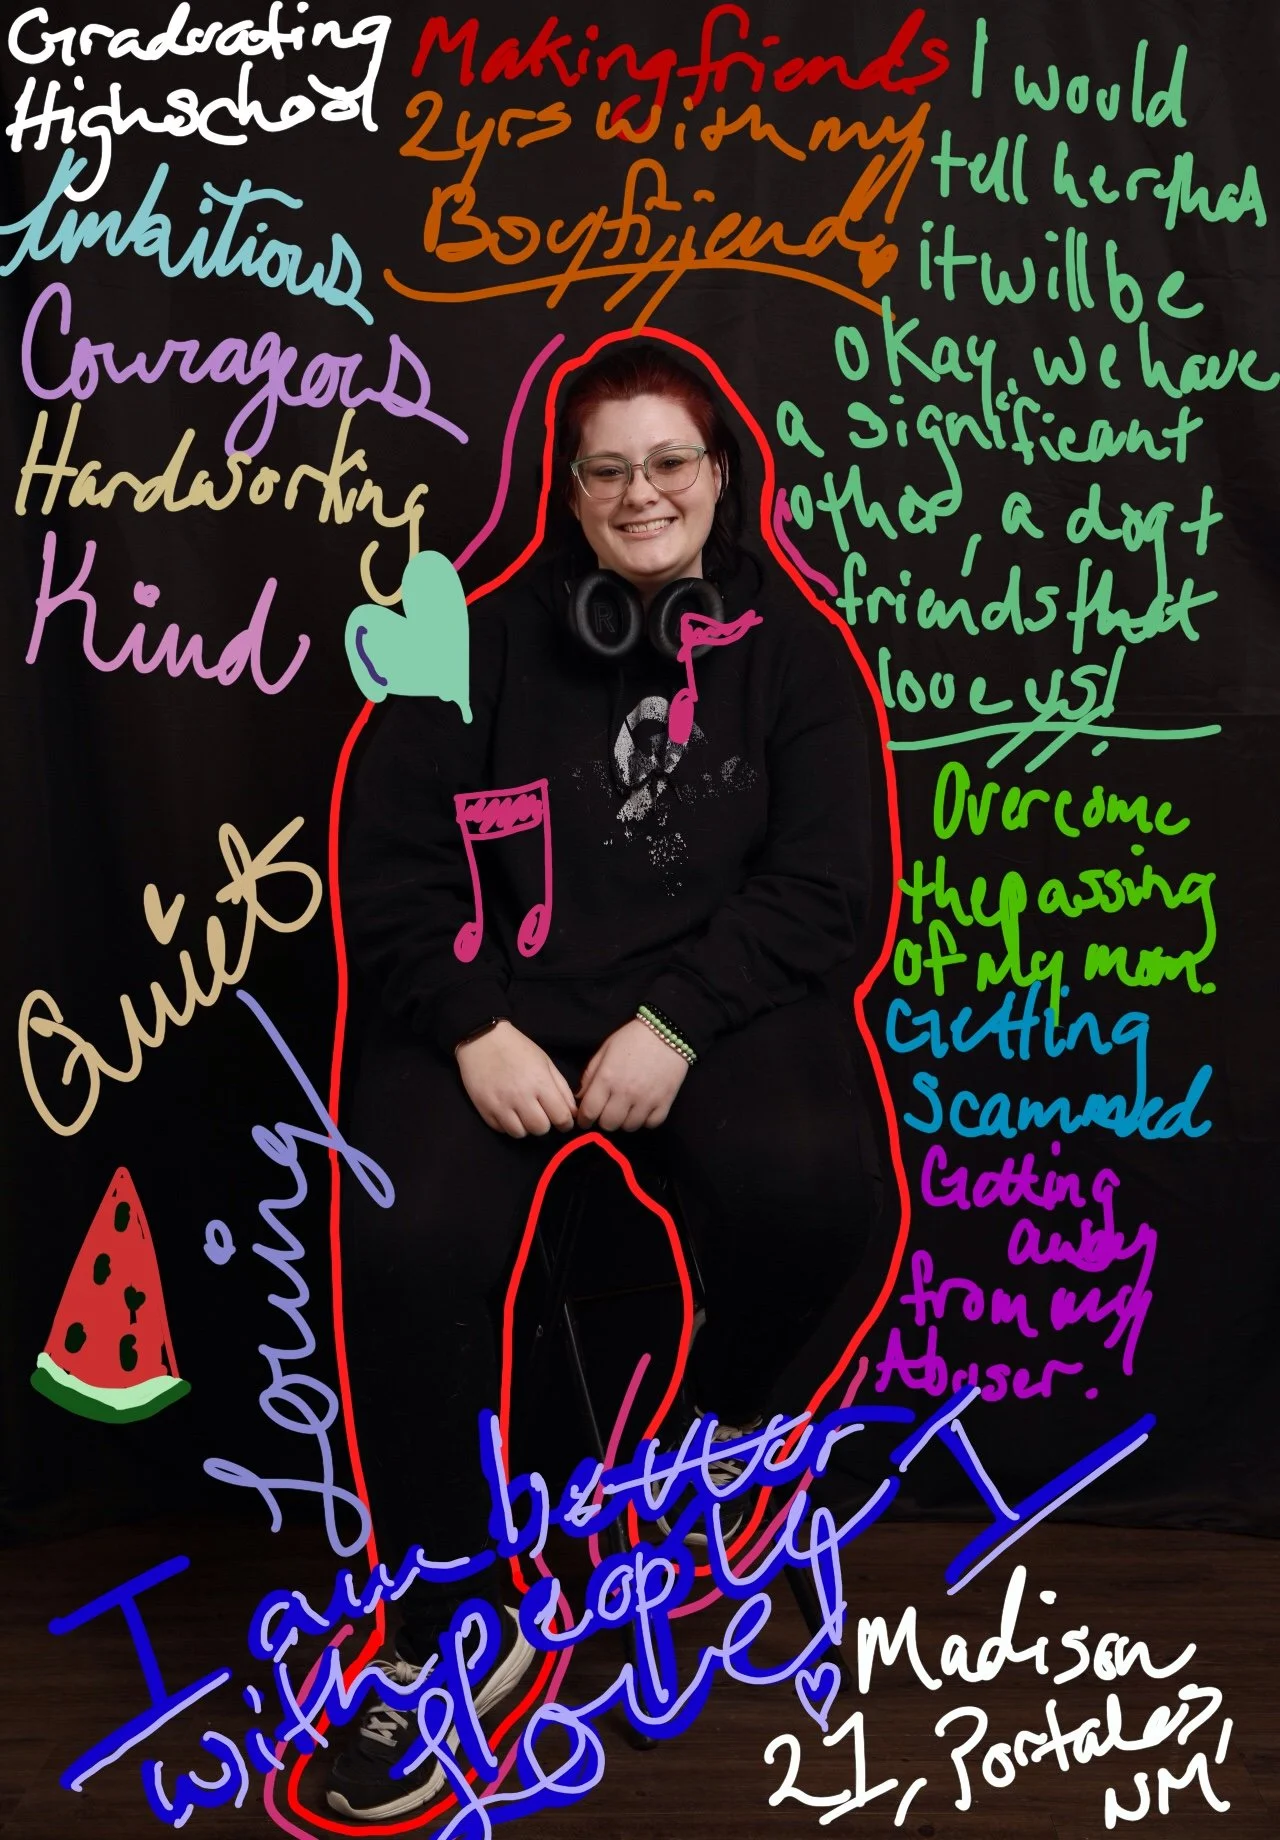 Graduating
Highschool
Ambitious
Courageous
Hardworking
Kind
Making friends
2yrs with my
Boyfriend
I would
tell her that
it will be
okay, we have
a significant
other, a dog +
friends that
love us!
R
Overcome
the passing
of my mom.
Getting
scammed
Getting
away
from my
Abuser.
Quiet
Loving
I am better
with people I
Love!
Madison
21, Portales,
NM